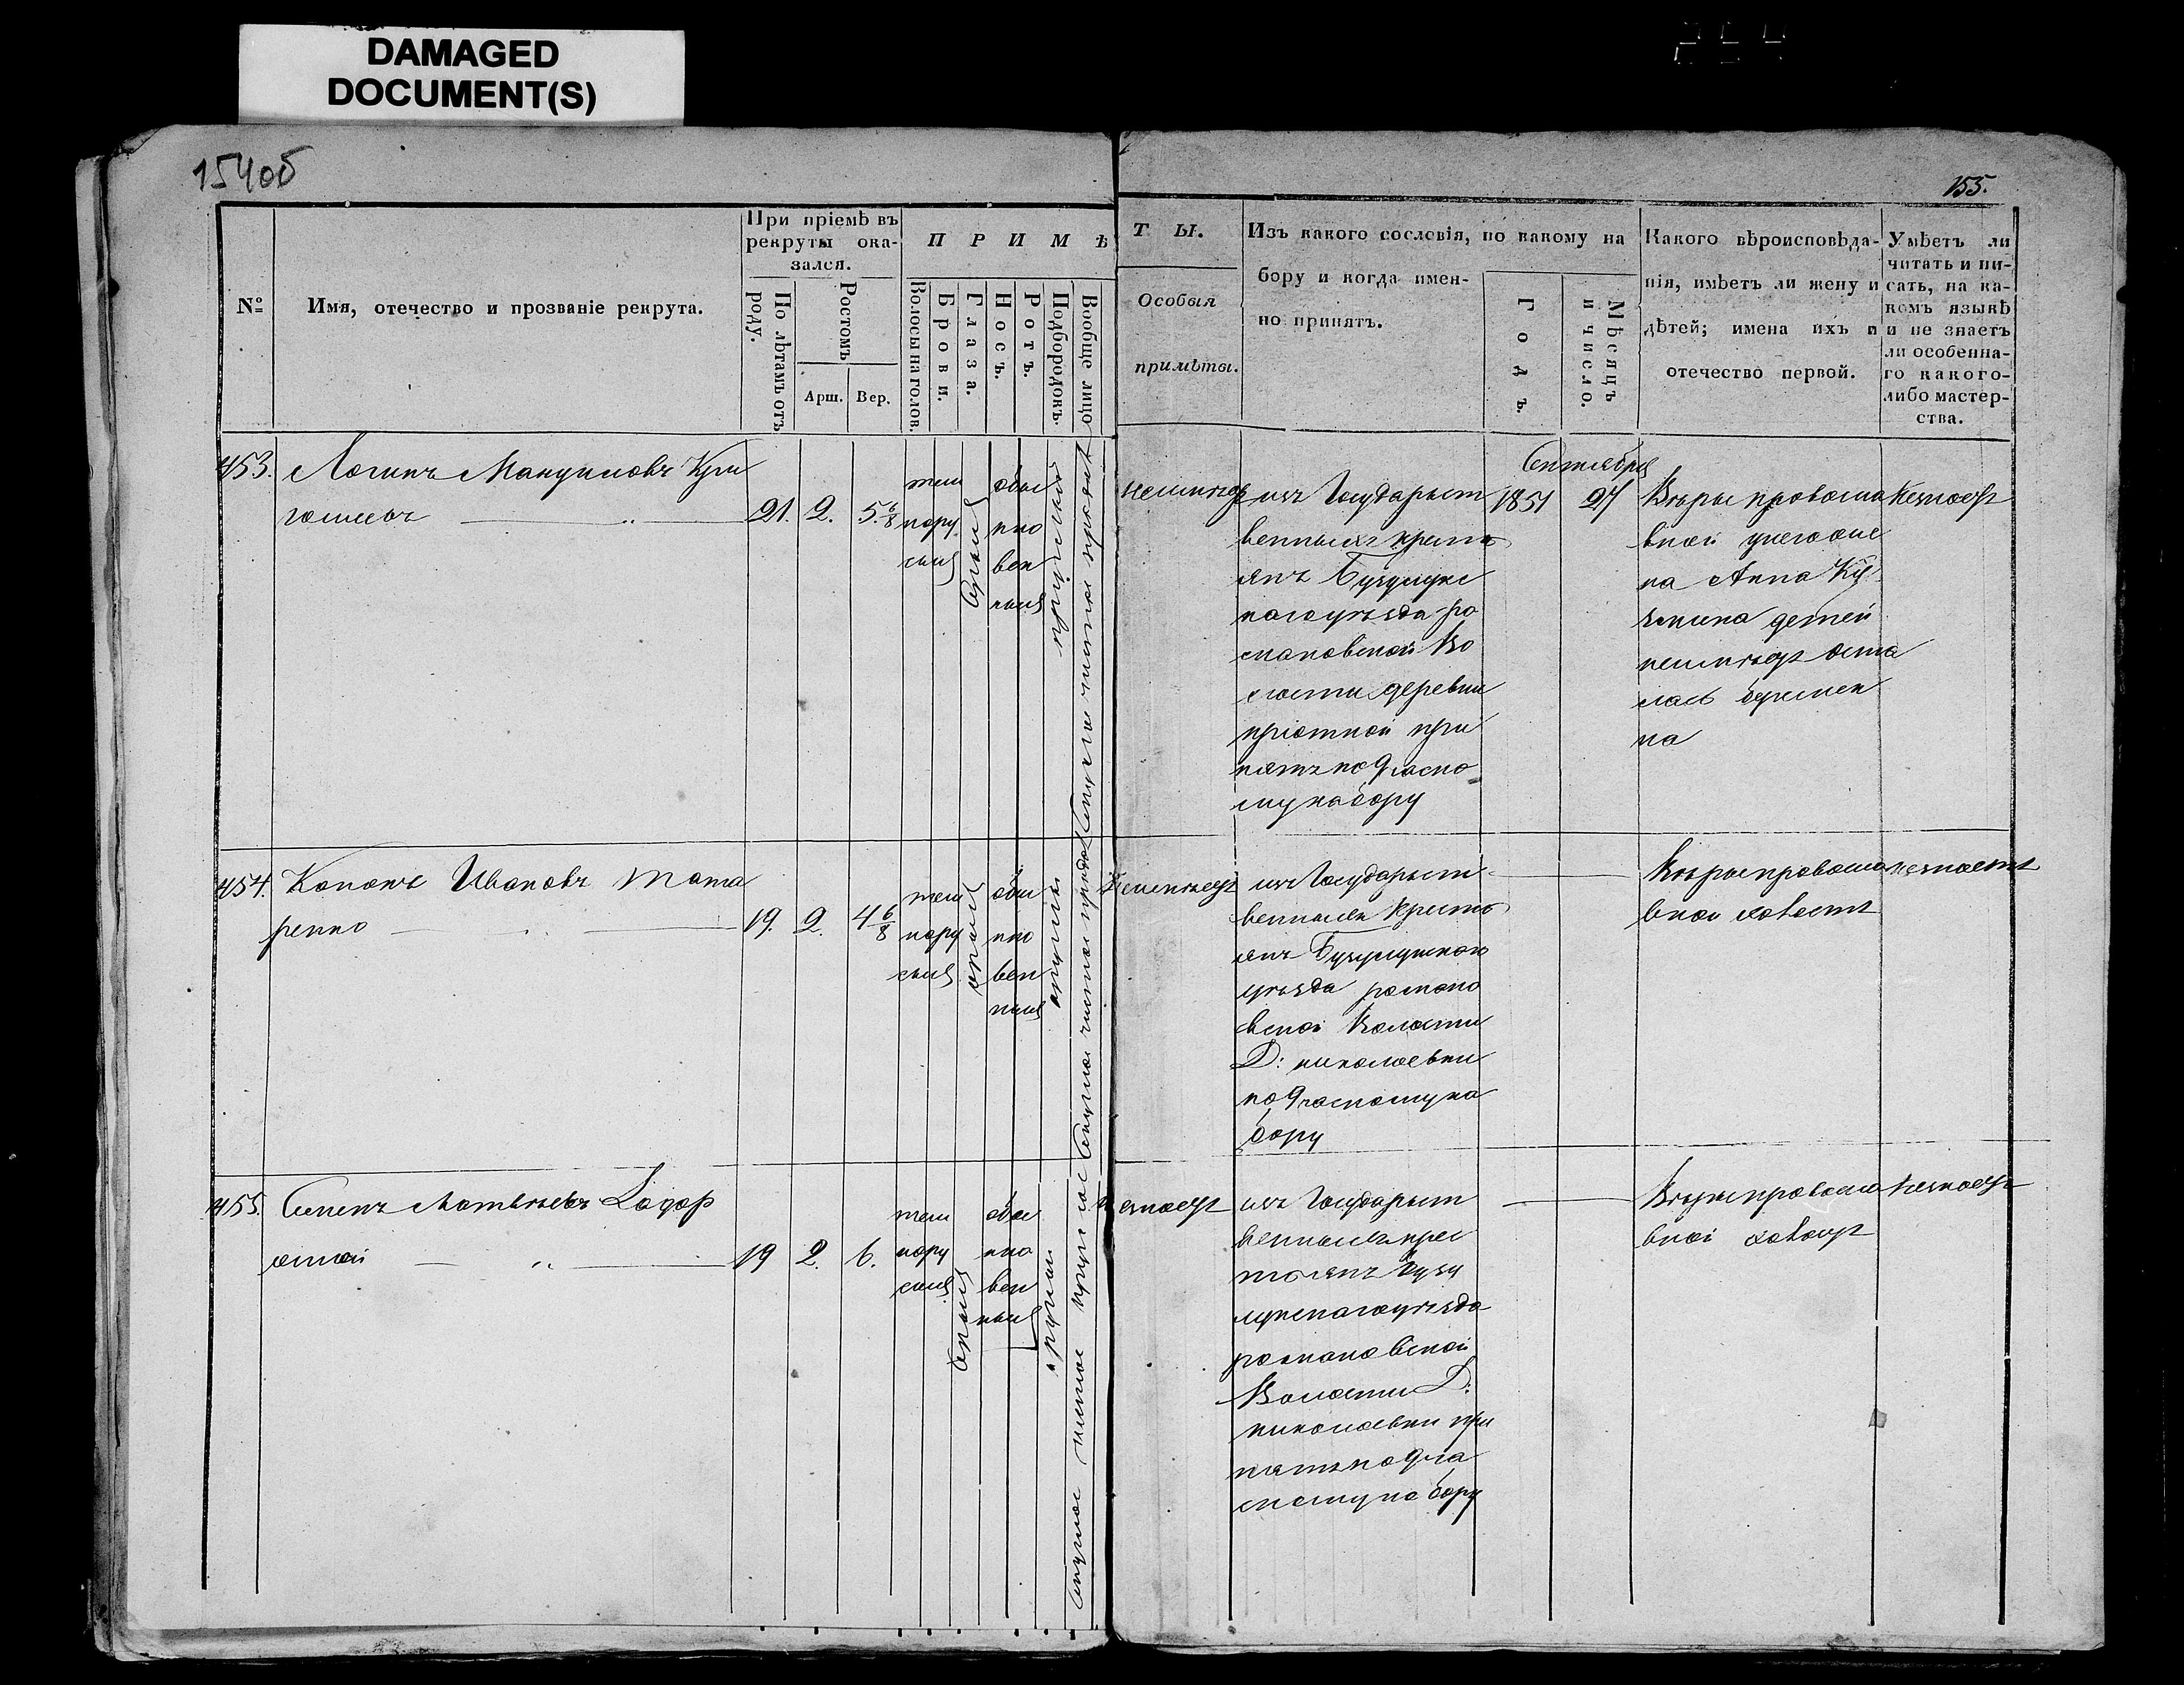 DAMAGED
DOCUMENT(S)
154об
155.
№
Имя, отечество и прозваніе рекрута.
При пріемѣ въ
рекруты ока-
зался.
По лѣтамъ отъ
роду.
Ростомъ
Арш.
Вер.
П Р И М Ѣ
Волосы на голов.
Брови.
Глаза.
Носъ.
Ротъ.
Подбородокъ.
Вообще лицо
Т Ы.
Особыя
примѣты.
Изъ какого сословія, по какому на
бору и когда имен-
но принятъ.
Годъ.
Мѣсяцъ
и число.
Какого вѣроисповѣда-
нія, имѣетъ ли жену и
дѣтей; имена ихъ и
отечество первой.
Умѣетъ ли
читать и пи-
сать, на ка-
комъ языкѣ
и не знаетъ
ли особенна-
го какого-
либо мастер-
ства.
453.
Логинъ Мануиловъ
21. 2. 5. 6/8
темн
нору
сыя
сѣрыя
обык
нно
вен
ныя
неимѣетъ
изъ Государст
венныхъ кресть
янъ Бузулукс
кагоуѣзда Ро
мановской Во
лости деревни
пріютной при
нятъ по 9 частно
му набору
Сентября
1851 27
Вѣры правосла
вной унегожс
на Анна
детей
неимѣетъ оста
лась беремен
на
незнаетъ
454.
Кононъ Ивановъ Тата
ренко
19. 2. 4 6/8
темн
нору
сыя
обы
кно
вен
ныя
неимѣетъ
изъ Государст
венныхъ кресть
янъ Бузулукскаго
уѣзда романо
вской Волости
Д: николаевки
по 9 частному на
бору
Вѣры правосла
вной холостъ
незнаетъ
455.
Семенъ Матвѣевъ
19 2. 6.
темн
нору
сыя
обык
нно
вен
ныя
изъ Государст
венныхъ крес
тьянъ Бузу
лукскагоуѣзда
романовской
Волости Д:
николаевки при
нятъ по 9 ча
стному набору
Вѣры правосла
вной холостъ
незнаетъ